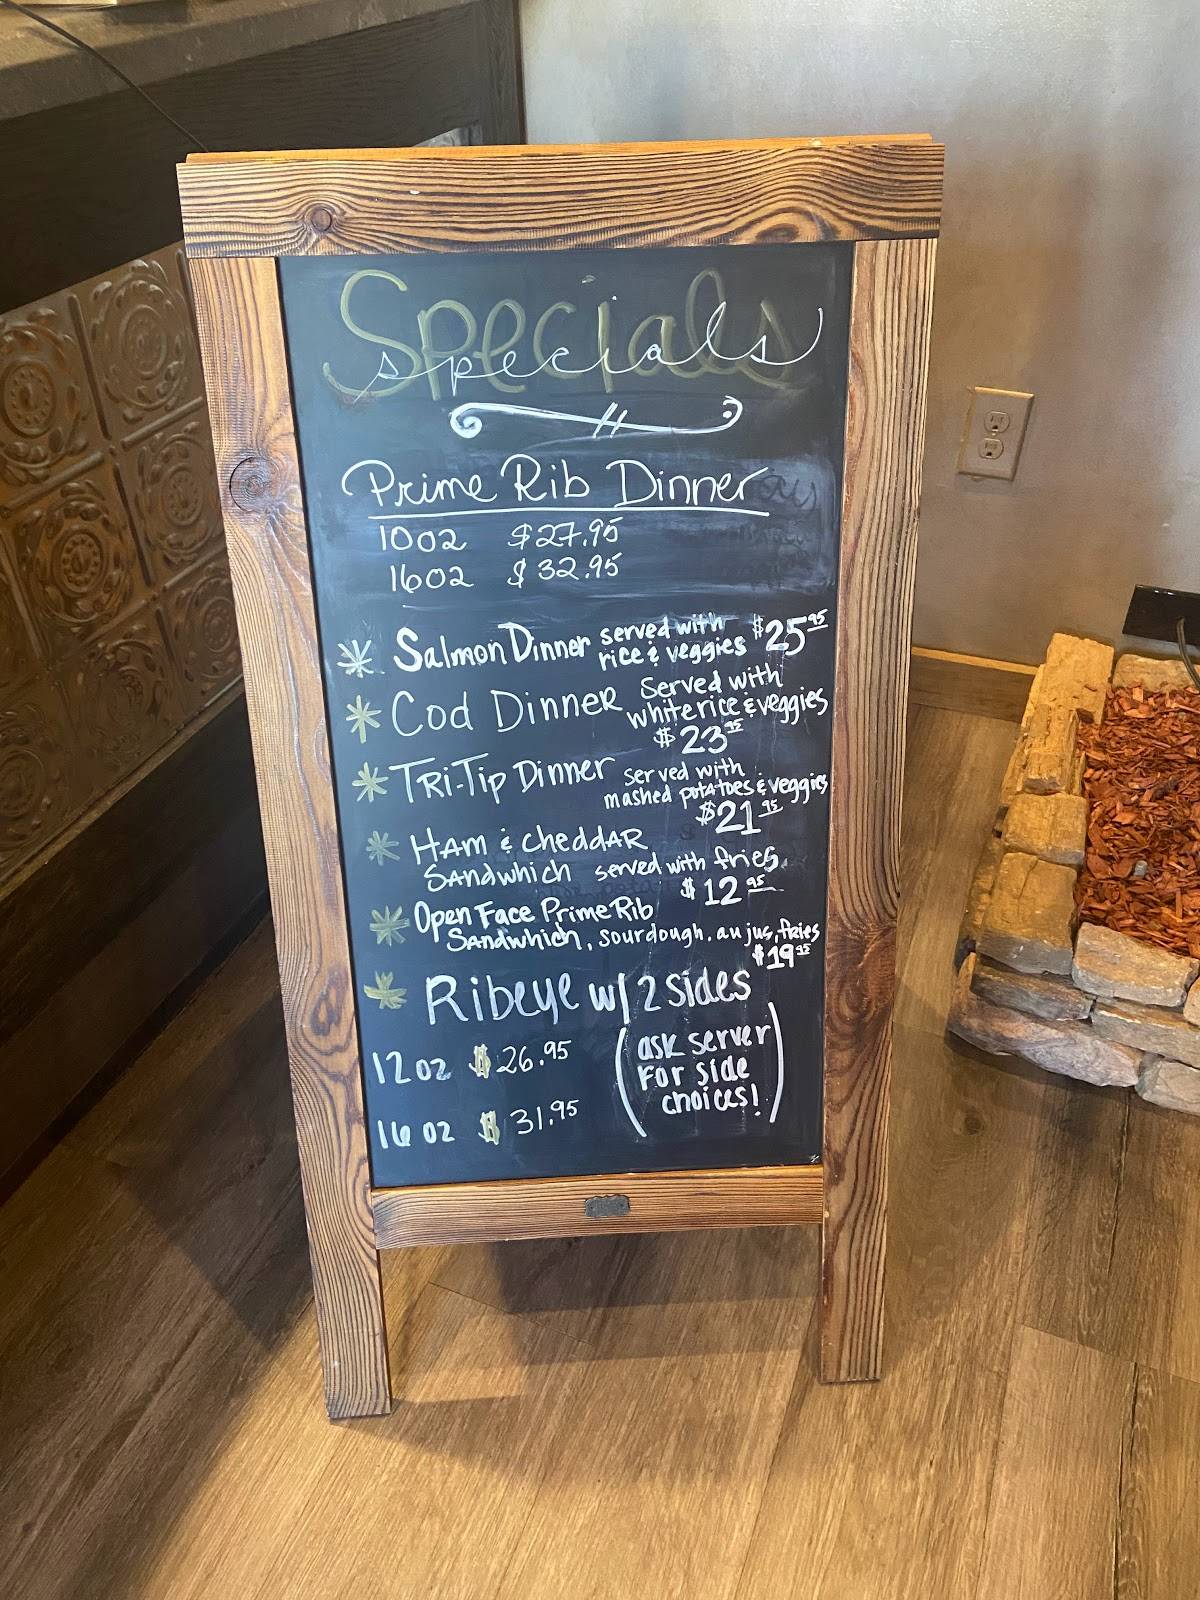 Specials
specials
Prime Rib Dinner
10oz $27.95
16oz $32.95
Salmon Dinner served with rice & veggies $25.95
Cod Dinner served with white rice & veggies
$23.95
Tri-Tip Dinner served with mashed potatoes & veggies
$21.95
Ham & Cheddar
Sandwhich served with fries.
$12.95
Open Face Prime Rib
Sandwhich, sourdough, au jus, fries
$19.95
Ribeye w/ 2 sides
12oz $26.95
16oz $31.95
(ask server
for side
choices!)